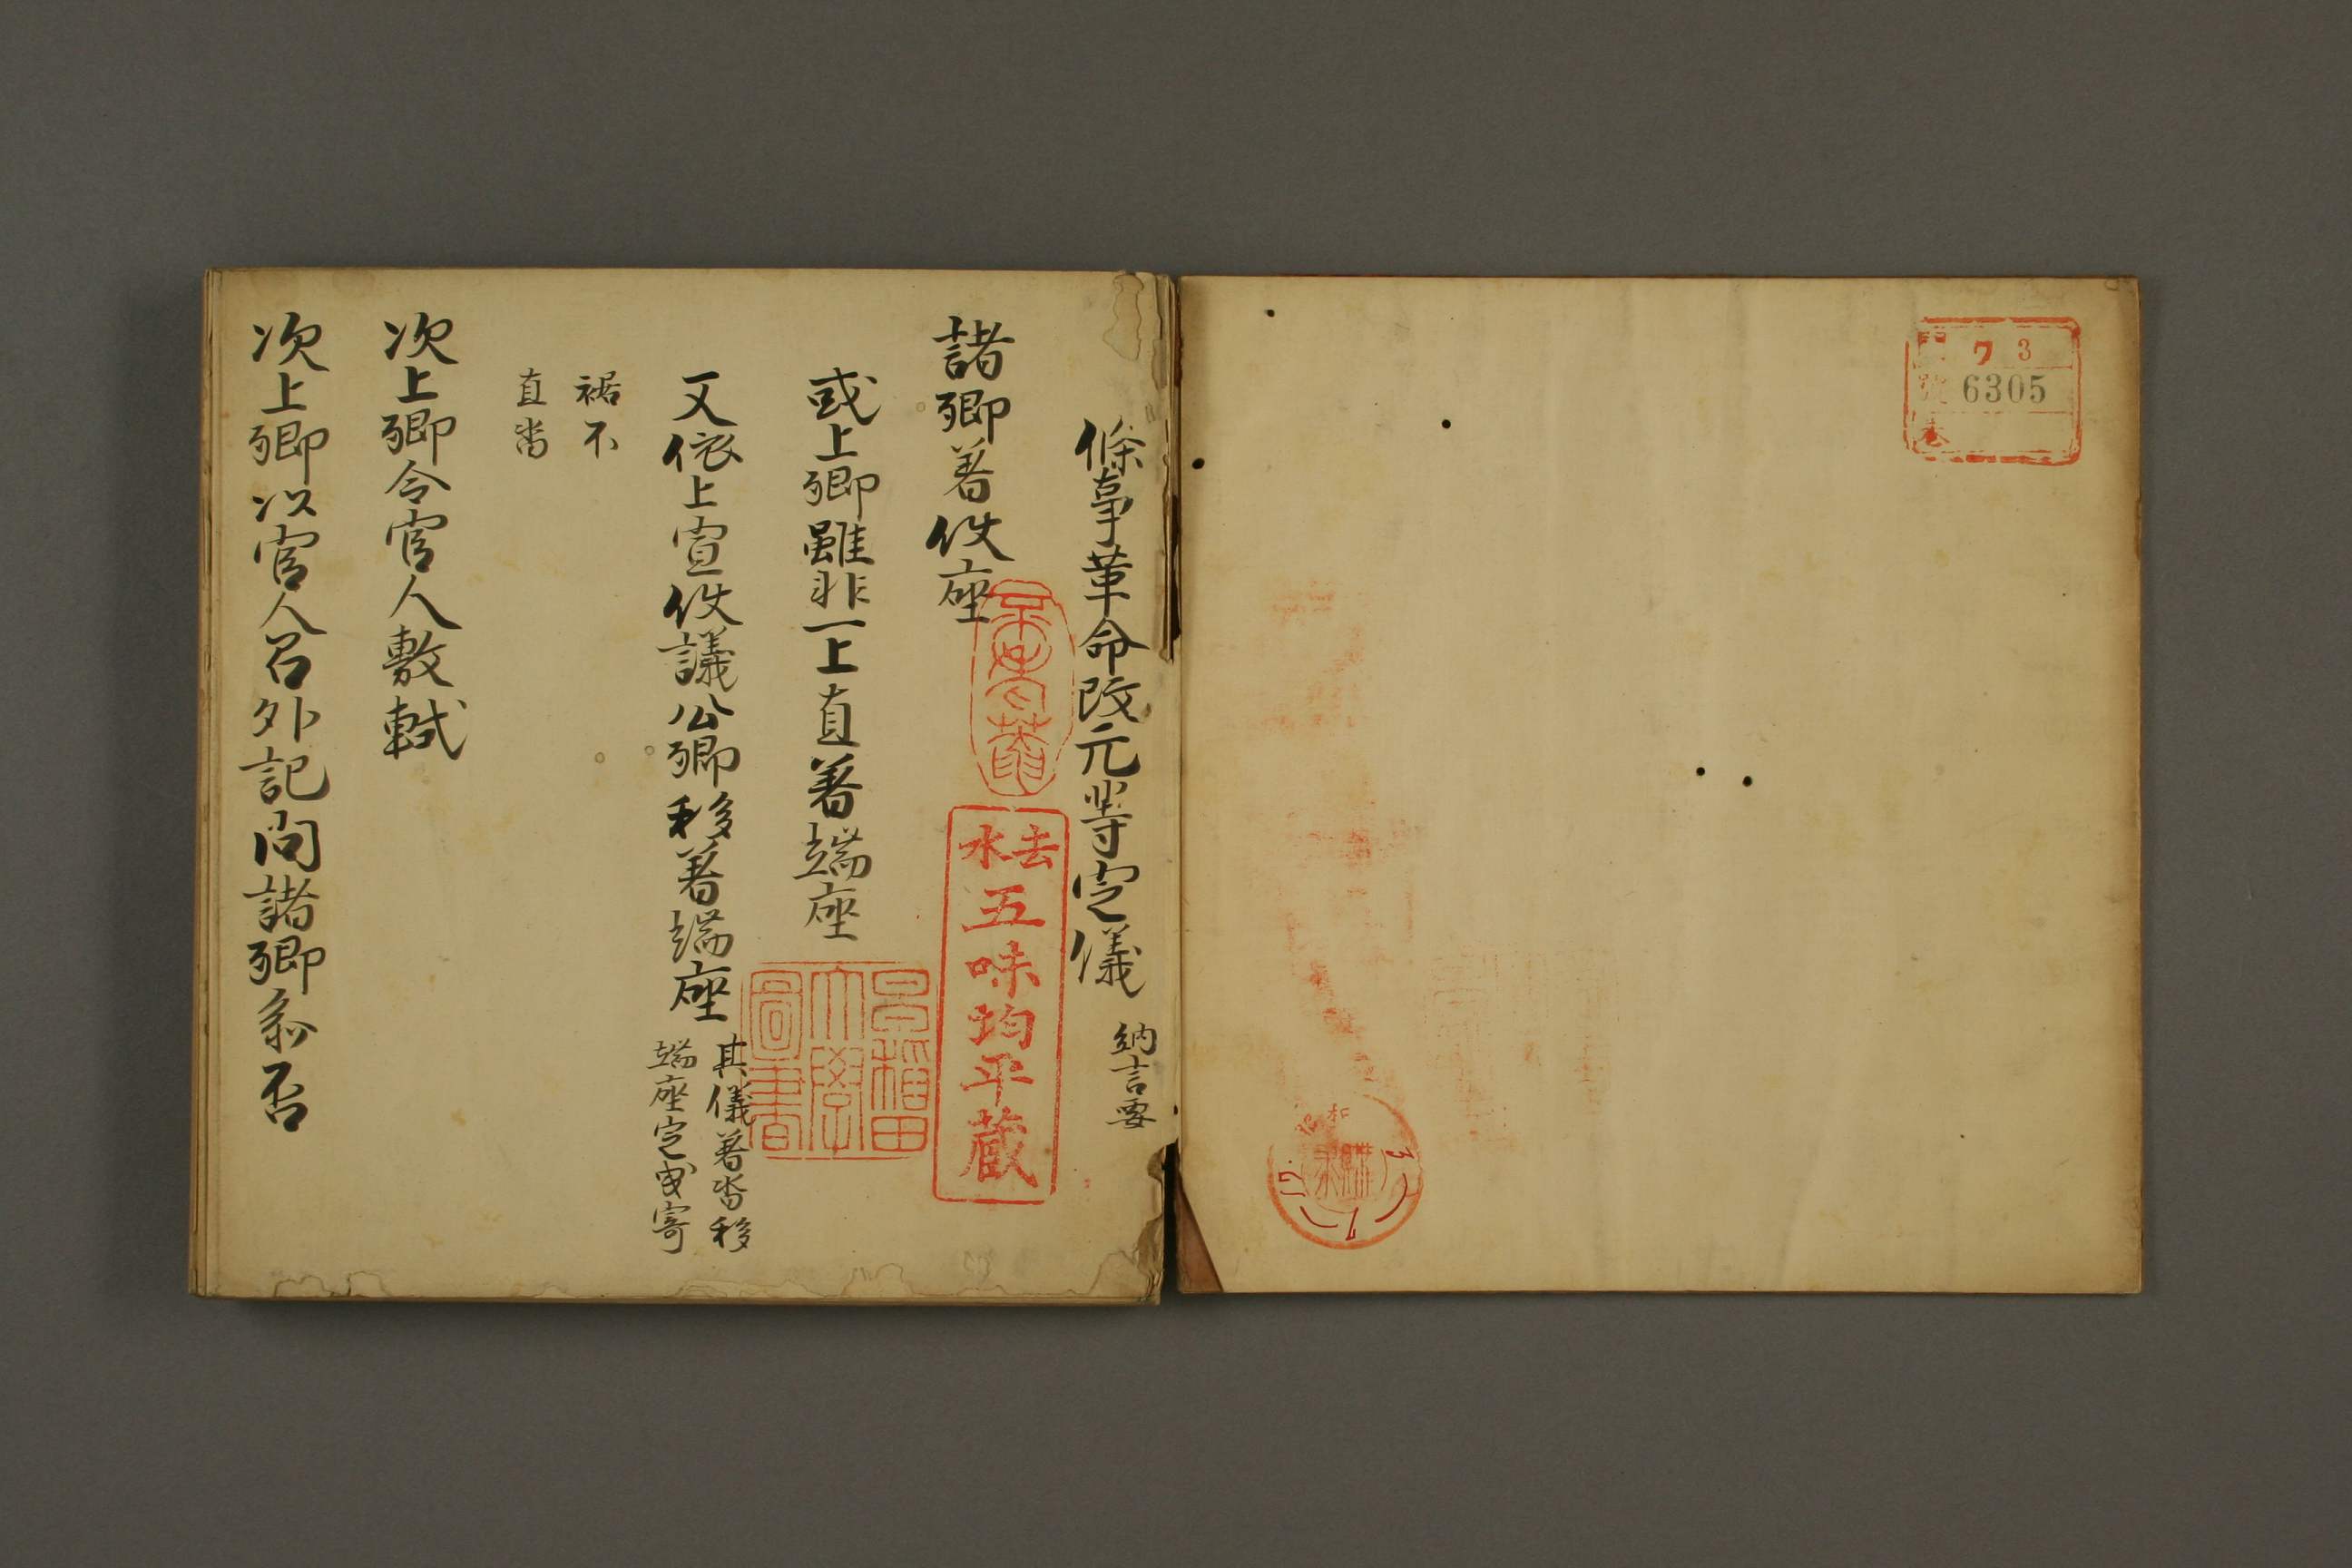 ワ 3
6305
條事革命改元等定儀 納言要
諸卿著仗座
或上卿雖非一上直著端座
又依上宣仗議公卿移著端座 其儀著沓移
端座定或寄
裾不
直沓
次上卿令官人敷軾
次上卿以官人召外記問諸卿参否
去水
五味均平藏
早稲田
大學
圖書